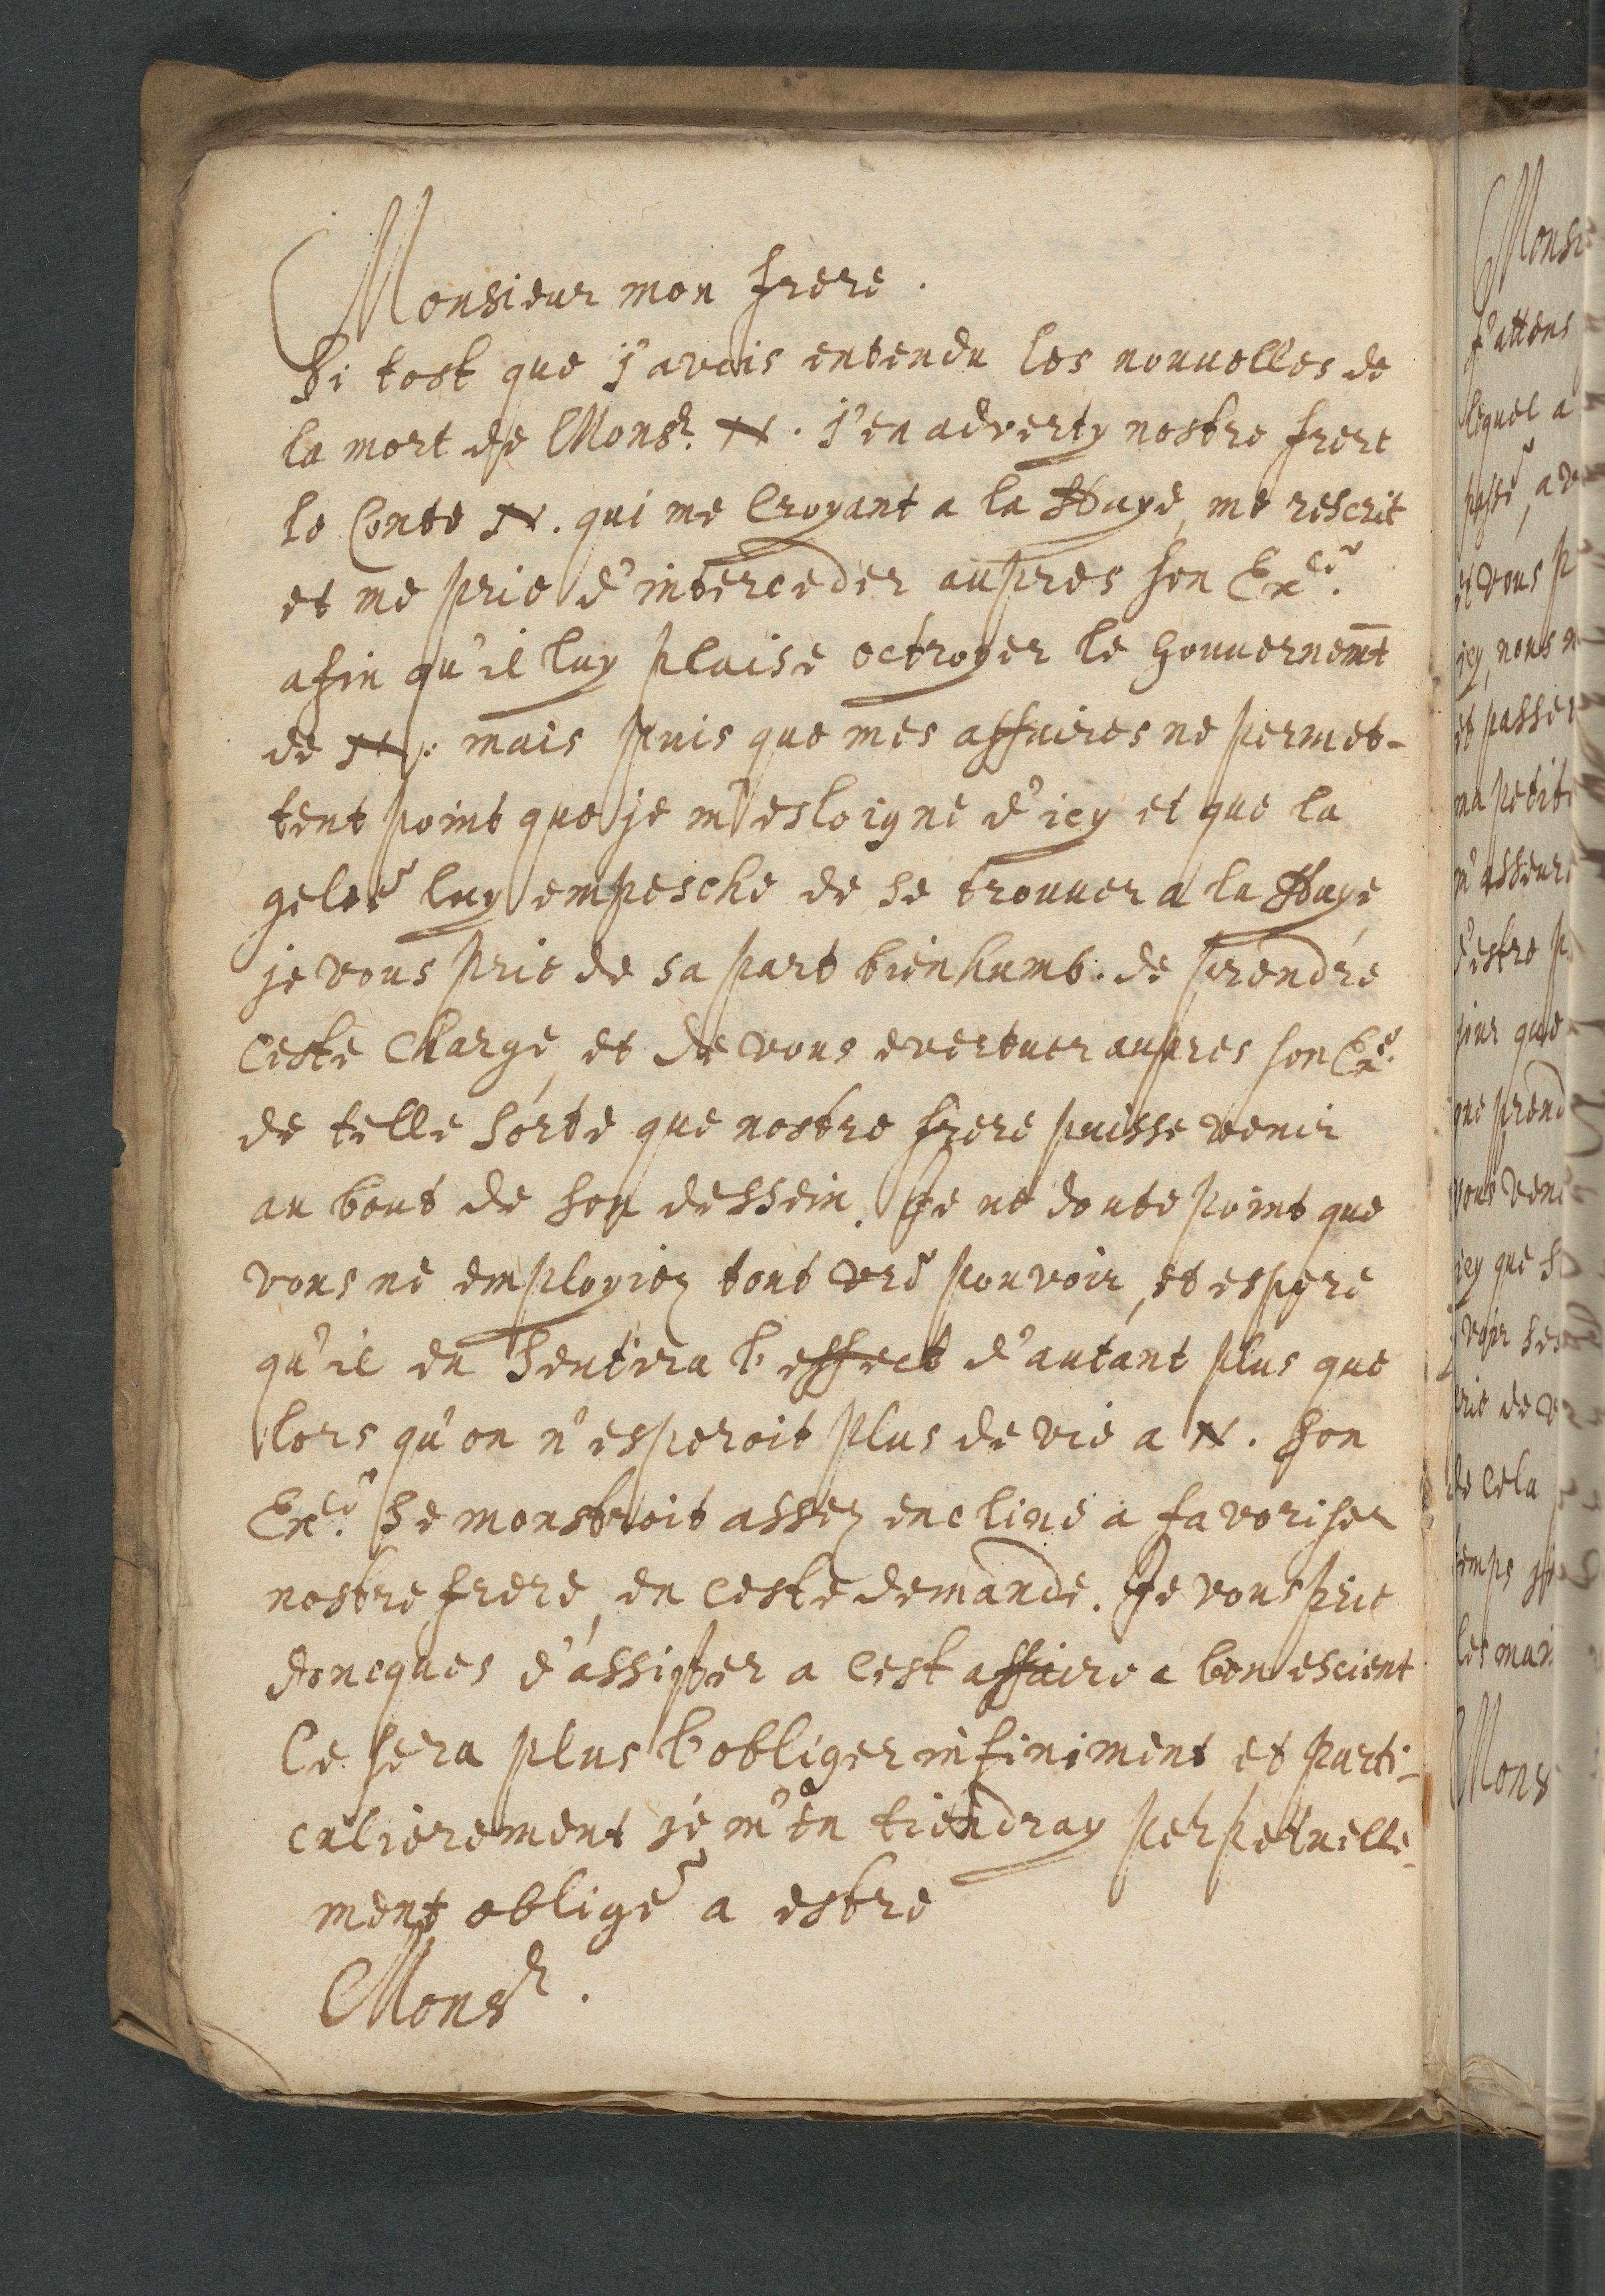 Monsieur mon frere.
Si tost que j'avois entendu les nouvelles de
la mort de Monsr. N. j'en adverty nostre frere
le Conte N. qui me Croyant a la Haye, me rescrit
et me prie d'interceder aupres son Excé.
afin qu'il luy plaise octroyer le Gouvernemt
de N. mais puis que mes affaires ne permet-
tent point que je m'esloigne d'icy et que la
gelée luy empesche de se trouver a la Haye
je vous prie de sa part bien humb. de prendre
ceste Charge, et de vous evertuer aupres son Exé.
de telle sorte que nostre frere puisse venir
au bout de son dessein. Je ne doute point que
vous ne employiez tout vre pouvoir, et espere
qu'il en sentira l'effect d'autant plus que
lors qu'on n'esperoit plus de vie a N. son
Excé. se monstroit assez encline a favoriser
nostre frere, en ceste demande. Je vous prie
doncques d'assister a cest affaire a bon escient
Ce sera plus l'obliger infiniment et parti-
culierement je m'en tiendray perpetuelle-
ment obligé a estre
Monsr.
Monsi
J'attens
lequel a
passé, av
et vous p
icy, nous n
et passer
ma petite
m'asseure
d'estre p
que
prend
vous veni
icy que s
voir ses
de v
de cela
temps
les mai
Mons